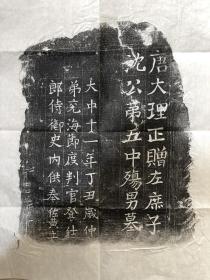 唐大理正贈左庶子
沈公第五中殤男墓
大中十一年丁丑歲仲
弟兖海節度判官登仕
郎侍御史内供奉佐黄士